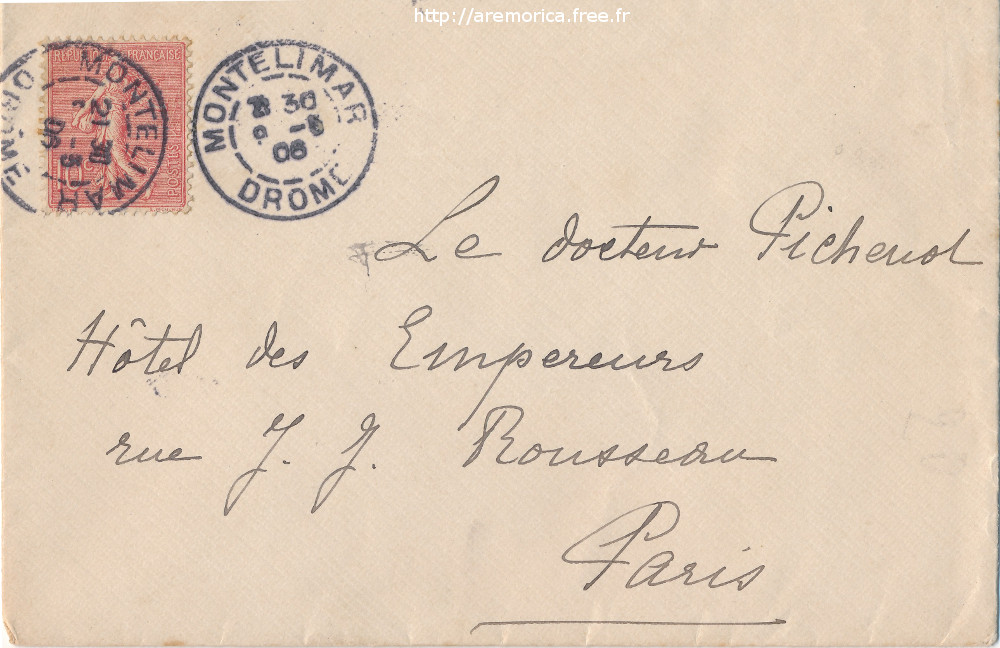 http://aremorica.free.fr
REPUBLIQUE FRANÇAISE
POSTES
MONTELIMAR
21 30
-5
06
DROME
MONTELIMAR
30
-5
06
DROME
Le docteur Pichenot
Hôtel des Empereurs
rue J. J. Rousseau
Paris